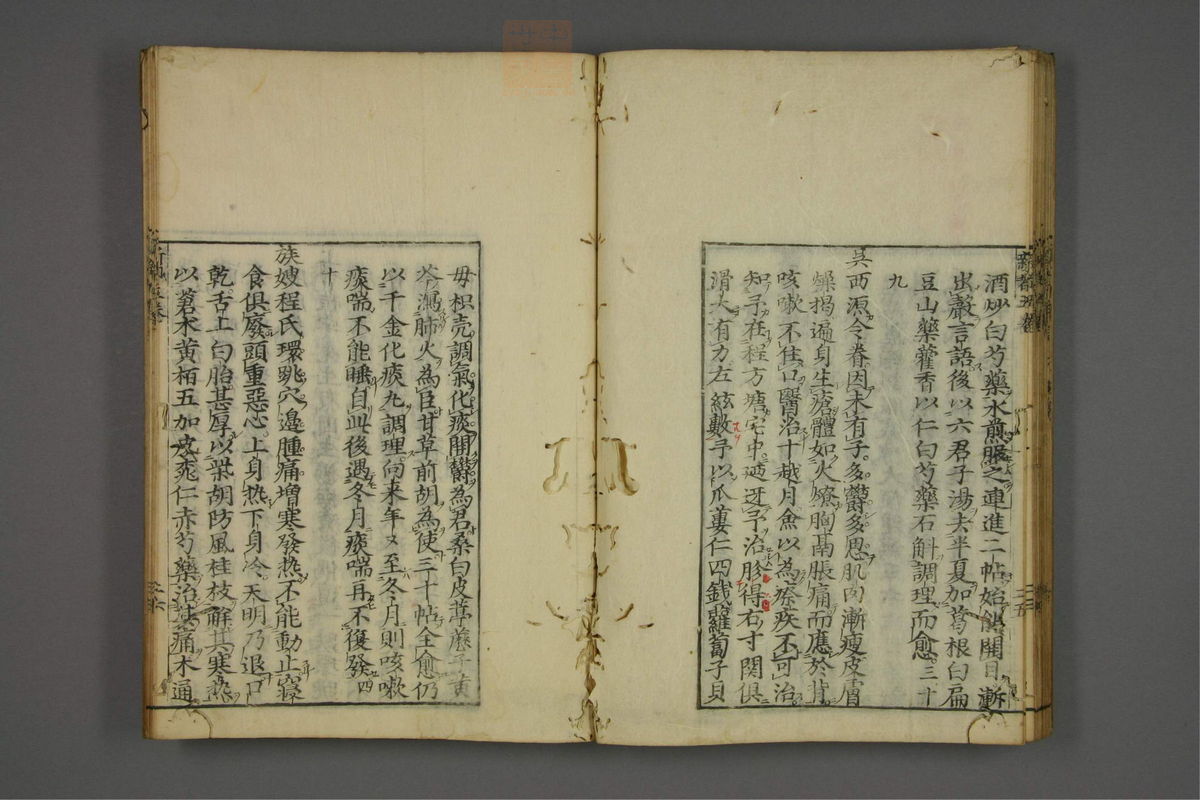 酒炒白芍藥水煎服之連進二帖始能開目漸
出聲言語後以六君子湯去半夏加葛根白扁
豆山藥藿香以仁白芍藥石斛調理而愈三十
九
吳西源令眷因未有子多鬱多思肌肉漸瘦皮膚
燥揭遍身生瘡體如火燎胸膈脹痛而應於背
咳嗽不住口醫治十越月僉以為瘵疾不可治
知予在程方塘宅中逆迓予治胗得右寸関俱
滑大有力左絃數予以瓜蔞仁四錢蘿蔔子貝
母枳壳調氣化痰開鬱為君桑白皮葶藶子黄
芩瀉肺火為臣甘草前胡為使三十帖全愈仍
以千金化痰丸調理向来年又至冬月則咳嗽
痰喘不能睡自此後遇冬月痰喘再不復發四
十
族嫂程氏環跳穴邉腫痛増寒發熱不能動止寢
食俱廢頭重惡心上身热下身冷天明乃退口
乾舌上白胎甚厚以柴胡防風桂枝解其寒热
以蒼术黄栢五加皮薏仁赤芍藥治其痛木通